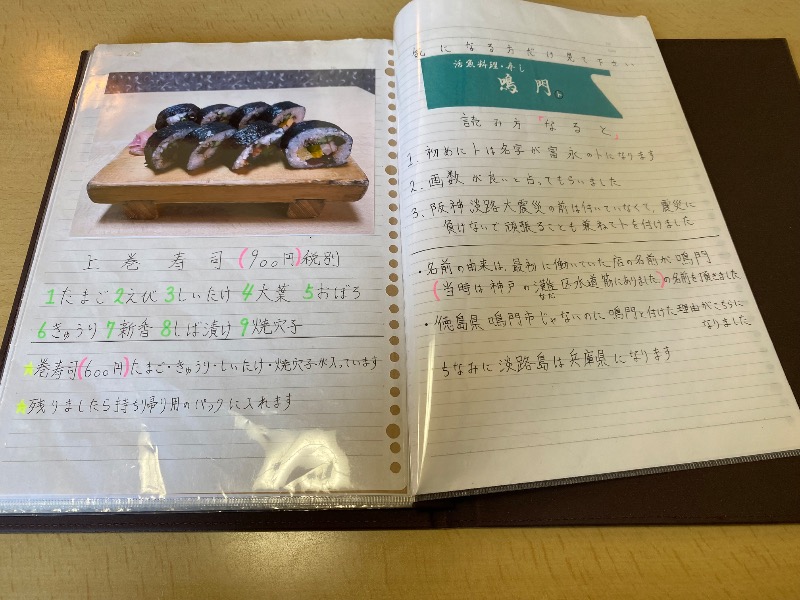 上巻寿司(900円)税別
1たまご 2えび 3しいたけ 4大葉 5おぼろ
6きゅうり 7新香 8しば漬け 9焼穴子
★巻寿司(600円)たまご・きゅうり・しいたけ・焼穴子が入っています
★残りましたら持ち帰り用のパックに入れます
気になる方だけ見て下さい
活魚料理・すし
鳴門と
読み方「なると」
1、初めにトは名字が富永のトになります
2、画数が良いと占ってもらいました
3、阪神淡路大震災の前は付いていなくて、震災に
負けないで頑張ることも兼ねてトを付けました
・名前の由来は、最初に働いていた店の名前が鳴門
(当時は神戸の灘区水道筋にありました)の名前を頂きました
なだ
・徳島県鳴門市じゃないのに鳴門と付けた理由がこちらに
なりました
ちなみに淡路島は兵庫県になります